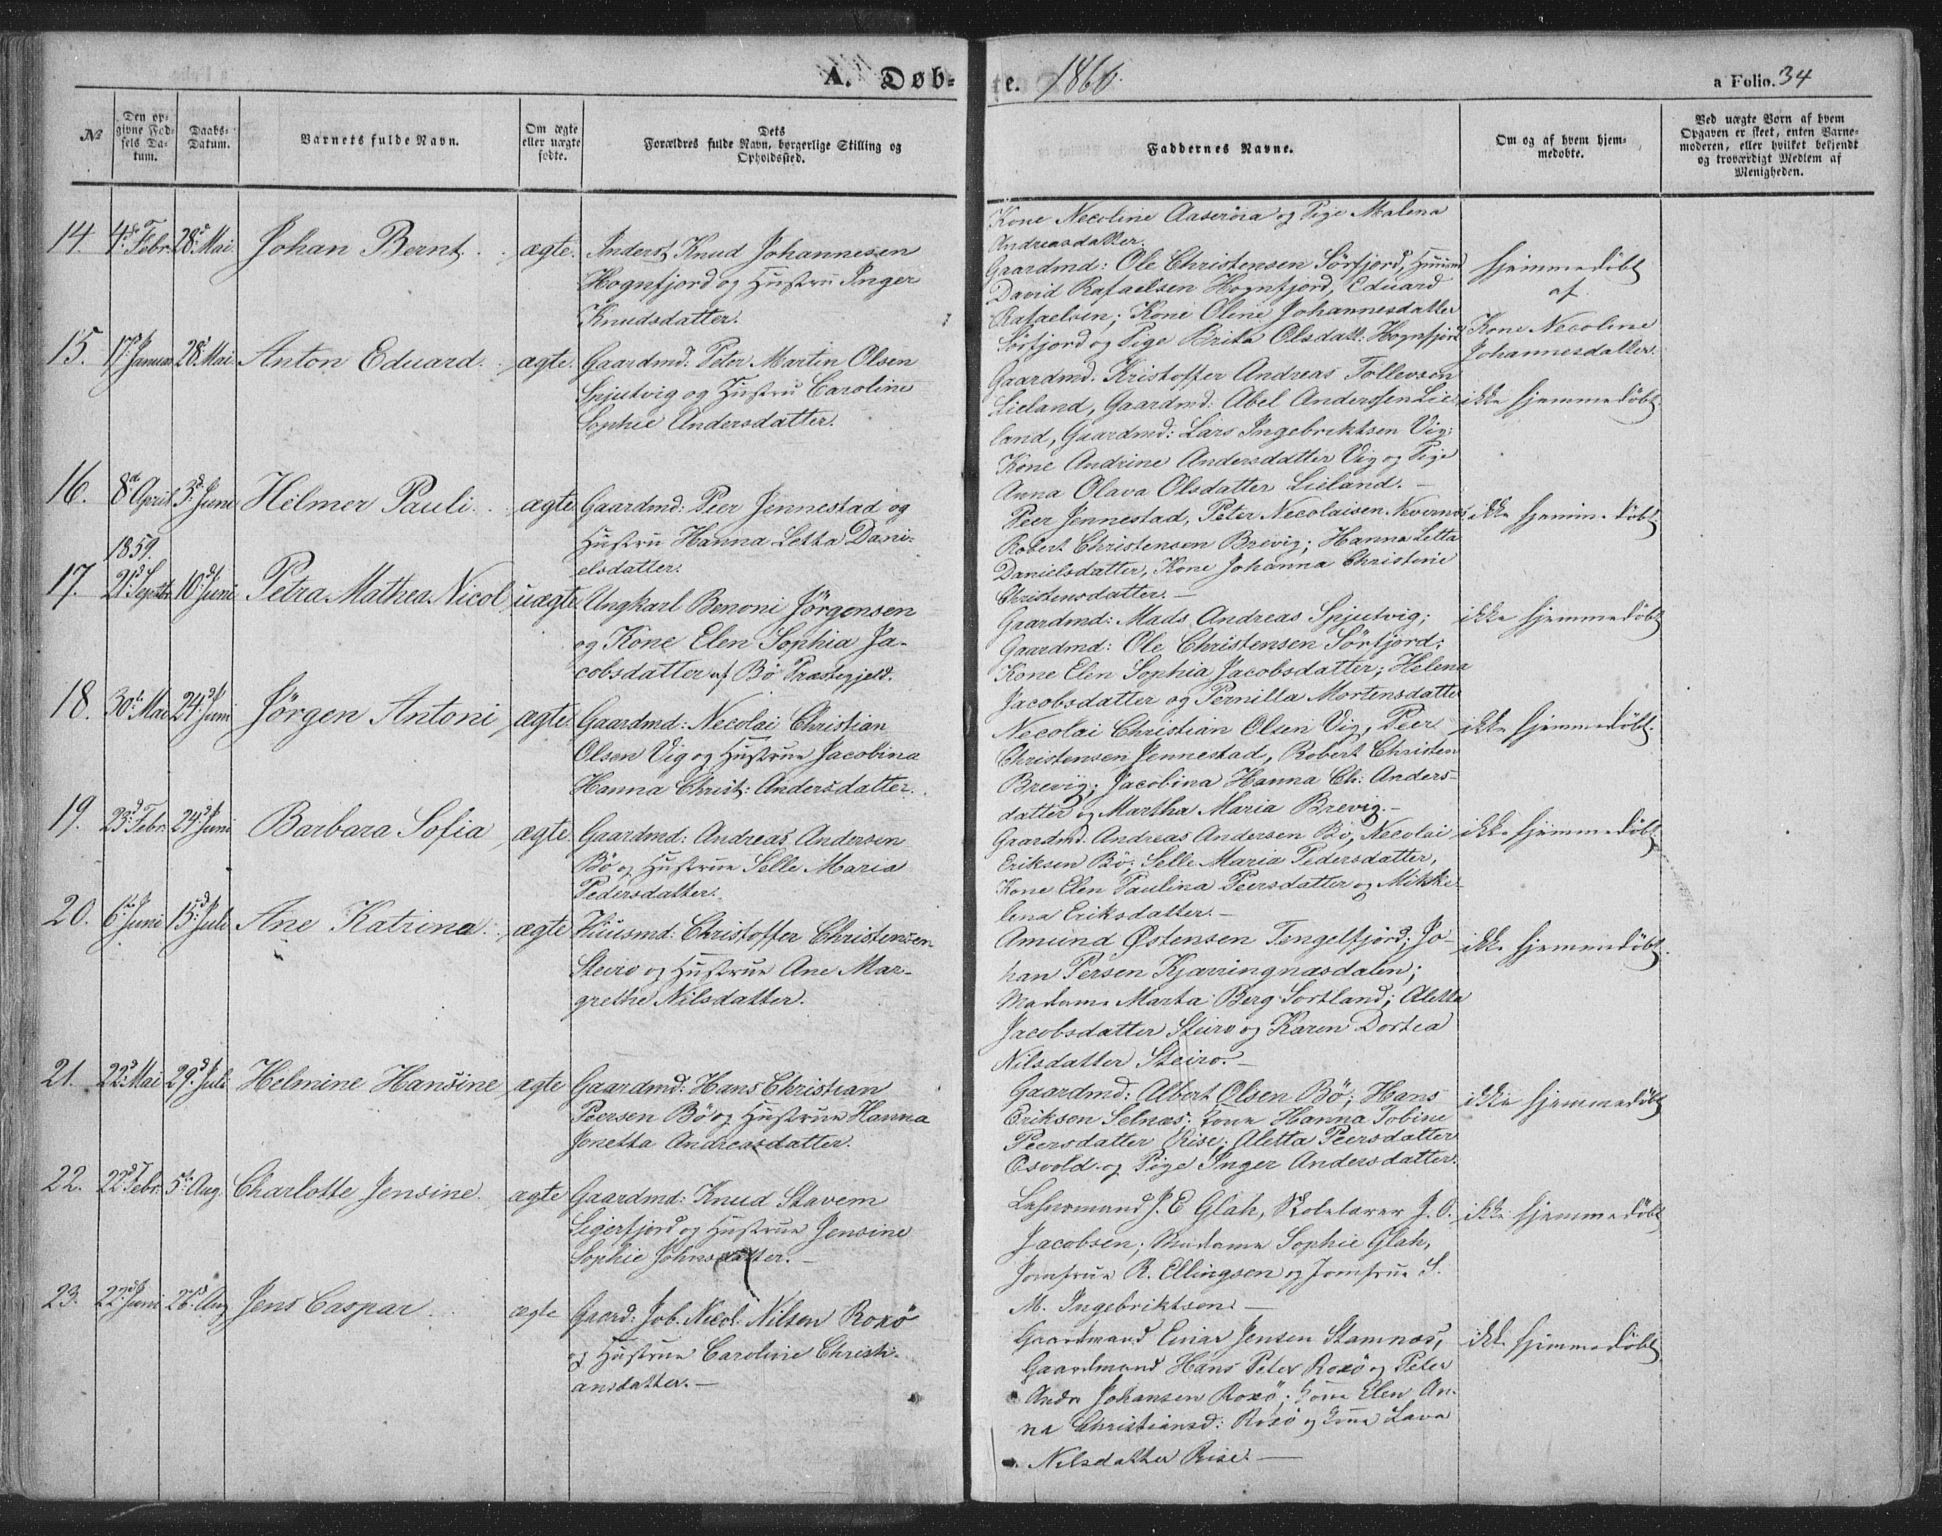 A. Døb-
№
Den op-
givne Fød-
sels Da-
tum.
Daabs-
Datum.
Barnets fulde Navn.
Om ægte
eller uægte
fødte.
Dets
Forældres fulde Navn, borgerlige Stilling og
Opholdssted.
14. 4de Febr. 28de Mai Johan Bernt. ægte. Inderst Knud Johannesen
Hognfjord og Hustru Inger
Knudsdatter.
15. 17de Januar 28de Mai Anton Eduard. ægte. Gaardmd. Peter Martin Olsen
Spjutvig og Hustru Caroline
Sophie Andersdatter.
16. 8de April 3de Juni Helmer Pauli. ægte Gaardmd: Peer Jennestad og
Hustru Hanna Letta Dani-
elsdatter.
1859.
17. 21de Septbr 10de Juni Petra Mathea Nicol. uægte Ungkarl Benoni Jörgensen
og Kone Elen Sophia Ja-
cobsdatter af Bö Præstegjeld.
18. 30te Mai 24de Juni Jörgen Antoni ægte. Gaardmd: Necolai Christian
Olsen Vig og Hustrue Jacobina
Hanna Christ: Andersdatter.
19. 23de Febr. 24de Juni Barbara Sofia ægte Gaardmd: Andreas Andersen
Bö og Hustrue Selle Maria
Pedersdatter.
20. 6te Juni 15de Juli Ane Katrina. ægte Huusmd: Christoffer Christensen
Steiro og Hustrue Ane Mar-
grethe Nilsdatter.
21. 22de Mai 29de Juli Helmine Hansine ægte Gaardmd: Hans Christian
Peersen Bö og Hustrue Hanna
Jonetta Andreasdatter.
22. 22de Febr. 5te Aug. Charlotte Jensine. ægte Gaardmd: Knud Stavem
Sigerfjord og Hustrue Jensine
Sophie Johnsdatter. —
23. 22de Juni 26de Aug Jens Caspar. ægte Gaard: Job. Nicol. Nilsen Roxö
og Hustrue Caroline Christi-
ansdatter. —
te. 1860.
a Folio. 34
Faddernes Navne.
Om og af hvem hjem-
medøbte.
Ved uægte Børn af hvem
Opgaven er skeet, enten Barne-
moderen, eller hvilket bekjendt
og troværdigt Medlem af
Menigheden.
Kone Necoline Aaseröia og Pige Malena
Andreasdatter.
Gaardmd: Ole Christensen Sörfjord, Huusmd
David Rafaelsen Hognfjord, Eduard
Rafaelsen; Kone Oline Johannesdatter
Sörfjord og Pige Brita Olsdatt: Hognfjord
hjemmedøbt
af
Kone Necoline
Johannesdatter.
Gaardmd. Kristoffer Andreas Tollevsen
Lieland, Gaardmd: Abel Andersen Lie-
land, Gaardmd: Lars Ingebriktsen Vig;
Kone Andrine Andersdatter Vig og Pige
Anna Olava Olsdatter Lieland. —
ikke hjemmedöbt
Peer Jennestad, Peter Necolaisen Kvernes
Robert Christensen Brevig; Hanna Letta
Danielsdatter, Kone Johanna Christine
Christensdatter. —
ikke hjemmedöbt
Gaardmd: Mads Andreas Spjutvig;
Gaardmd: Ole Christensen Sörfjord;
Kone Elen Sophia Jacobsdatter; Helena
Jacobsdatter og Pernilla Mortensdatter
ikke hjemmedöbt
Necolai Christian Olsen Vig, Peer
Christensen Jennestad, Robert Christen
Brevig; Jacobina Hanna Ch: Anders-
datter og Martha Maria Brevig. —
ikke hjemmedöbt.
Gaardmd. Andreas Andersen Bö, Necolai
Eriksen Bö; Selle Maria Pedersdatter,
Kone Elen Paulina Peersdatter og Mikke-
lena Eriksdatter. —
ikke hjemmedöbt
Amund Østensen Tengelfjord; Jo-
han Persen Kjærringnæsdalen;
Madame Marta Berg Sortland; Aletta
Jacobsdatter Steiro og Karen Dortea
Nilsdatter Steiro. —
ikke hjemmedöbt.
Gaardmd: Albert Olsen Bö; Hans
Eriksen Selnæs; Kone Hanna Tobine
Peersdatter Rise; Aletta Peersdatter
Osvold og Pige Inger Andersdatter.
ikke hjemmedöbt
Lehnsmand J. E Glah, Skolelærer J. O.
Jacobsen; Madame Sophie Glah,
Jomfrue R. Ellingsen og Jomfrue S.
M. Ingebriktsen. —
ikke hjemmedöbt
Gaardmand Einar Jensen Stamnæs,
Gaardmand Hans Peter Roxö og Peter
Andr Johansen Roxö; Kone Elen An-
na Christiansd: Roxö og Kone Lava
Nilsdatter Rise. —
ikke hjemmedöbt.